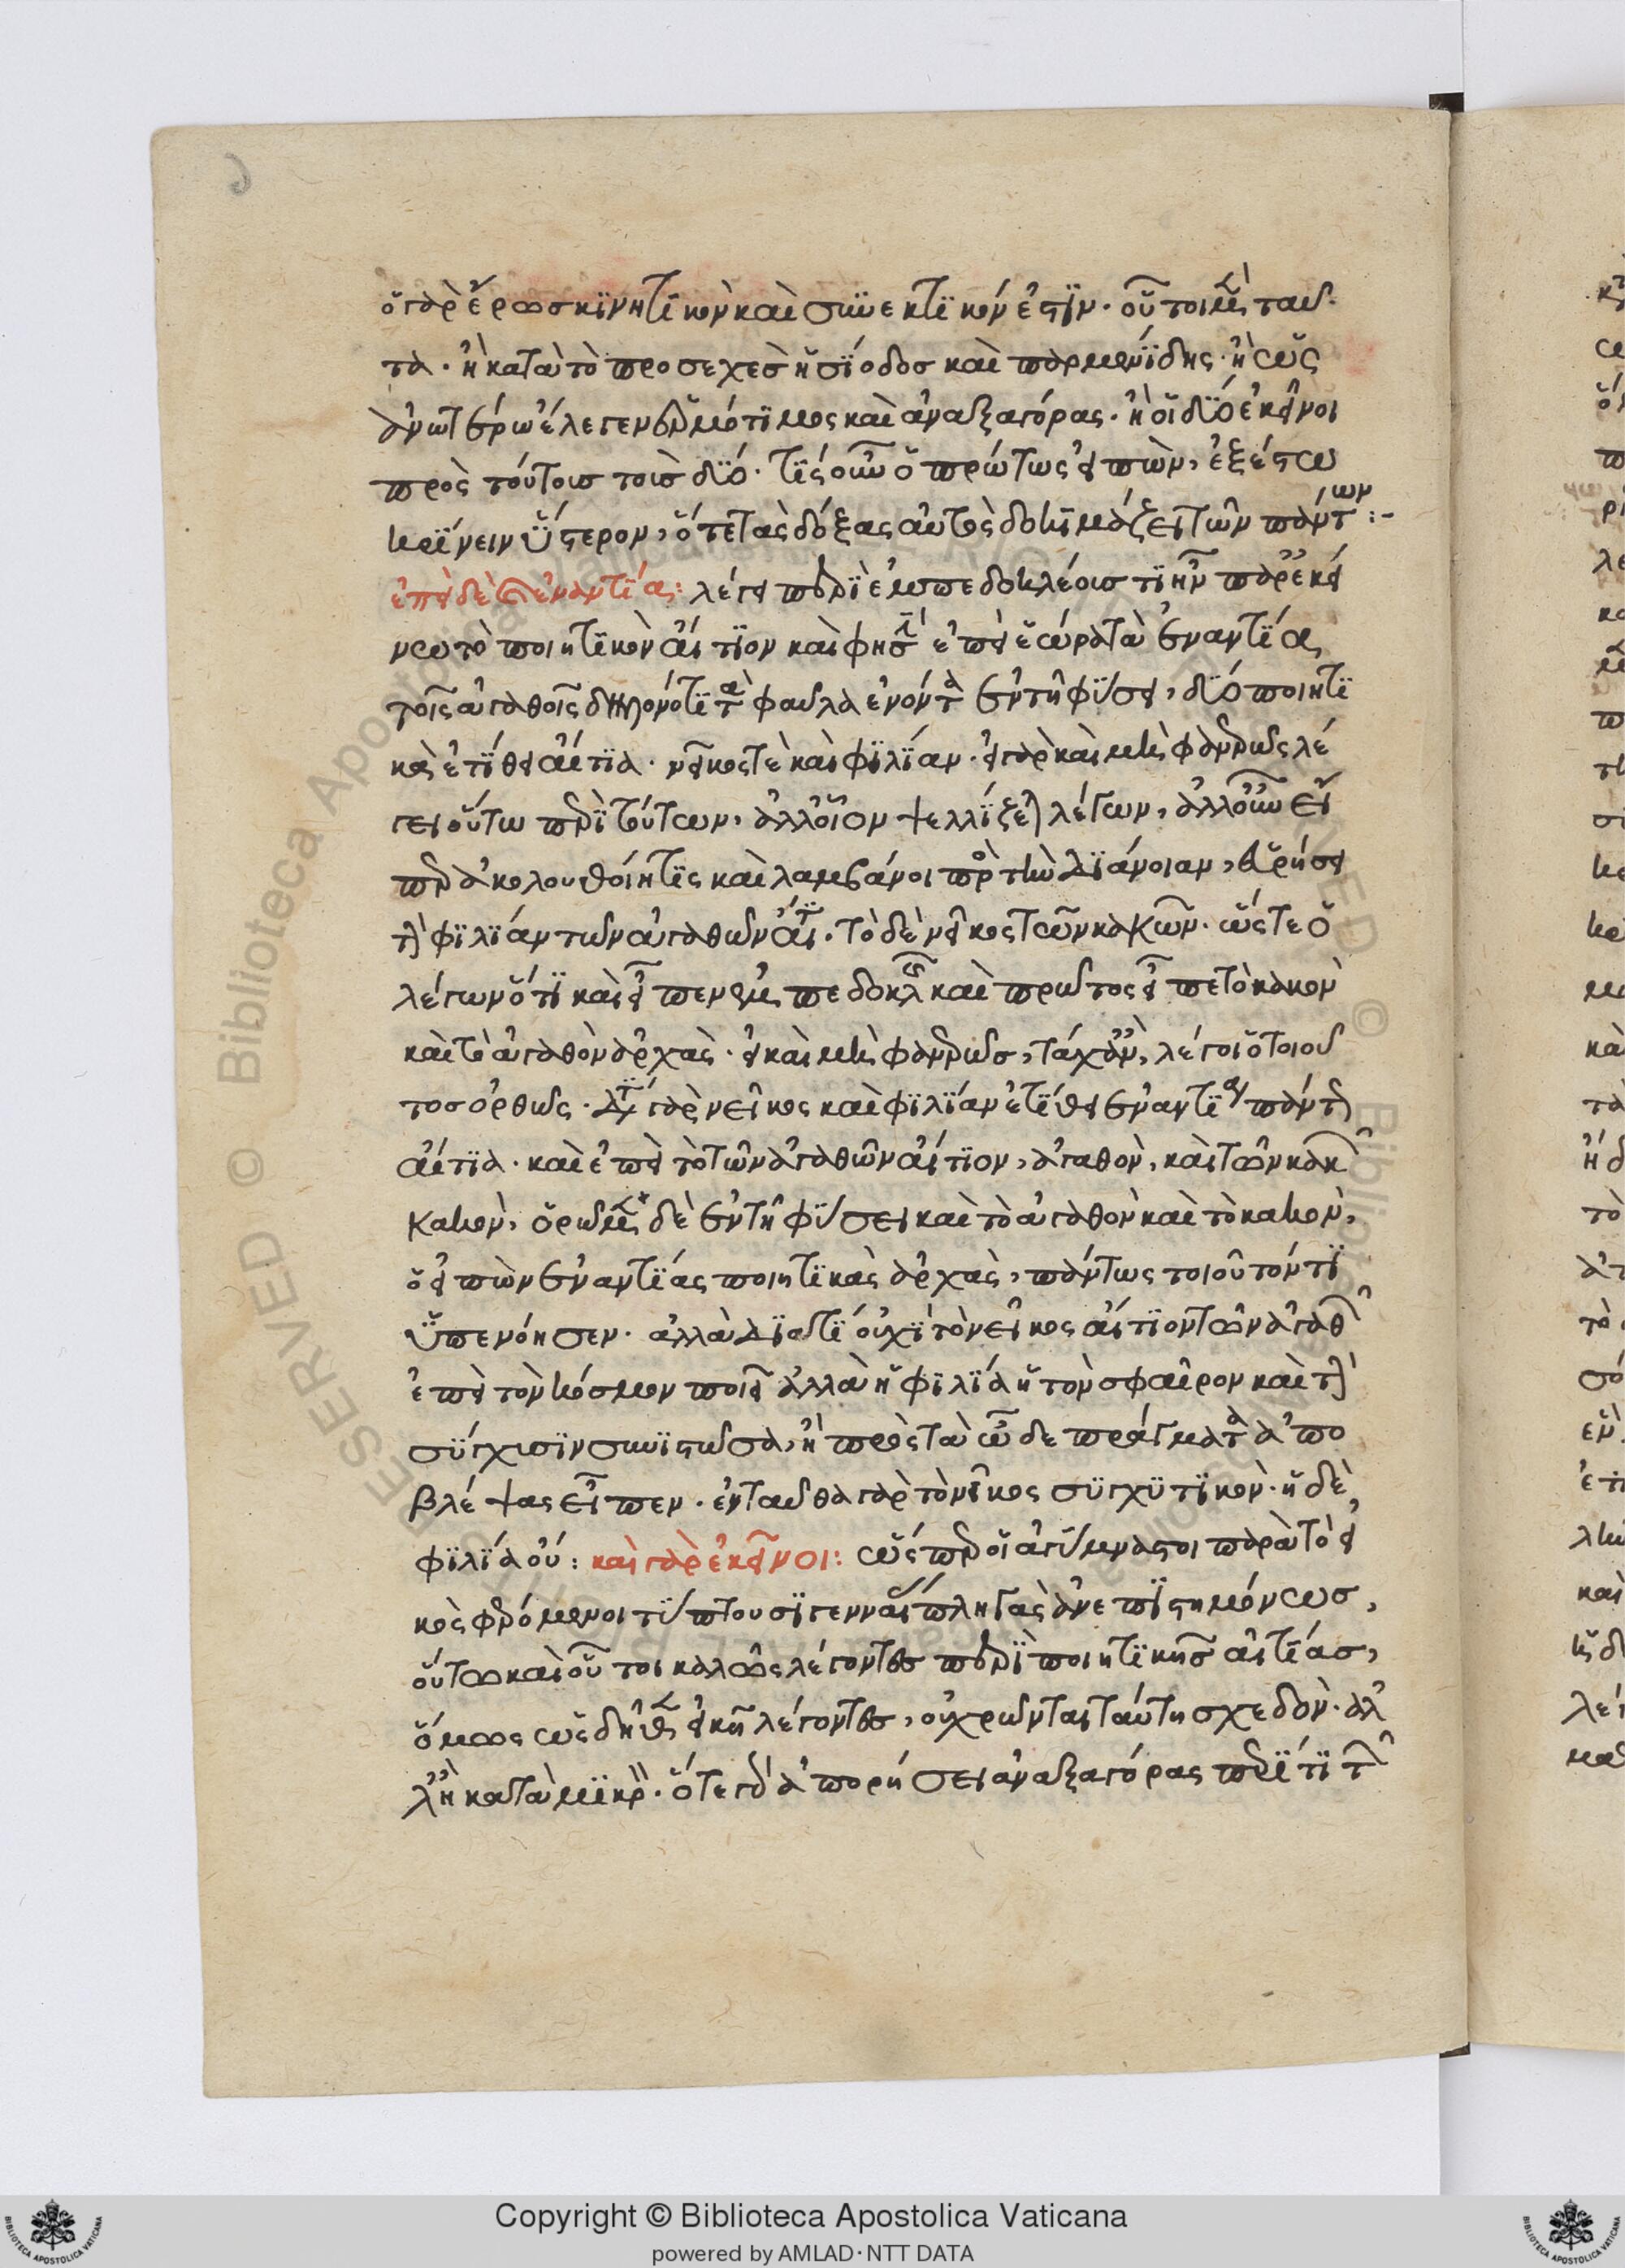 ὁ γὰρ ἔρως κινητικὸν καὶ συνεκτικόν ἐστιν. οὗτοι μὲν ταῦ
τα. ἢ κατὰ τὸ προσεχὲς ἡσίοδος καὶ παρμενίδης. ἢ ὡς
ἀνωτέρω ἔλεγεν ἑρμότιμος καὶ ἀναξαγόρας. ἢ οἱ δύο ἐκεῖνοι
πρὸς τούτοις τοῖς δύο. τίς οὖν ὁ πρώτως εἰπὼν, ἐξέστω
κρίνειν ὕστερον, ὅτε τὰς δόξας αὐτὸς δοκιμάζει τῶν πάντων :-
ἐπεὶ δὲ τἀναντία: λέγει περὶ ἐμπεδοκλέους τί ἦν παρ' ἐκεί
νω τὸ ποιητικὸν αἴτιον καὶ φησὶν ἐπεὶ ἑώρα τὰ ἐναντία
τοῖς ἀγαθοῖς δηλονότι τὰ φαῦλα ἐνόντα ἐν τῇ φύσει, δύο ποιητι
κὰ ἐτίθει αἴτια. νεῖκός τε καὶ φιλίαν. εἰ γὰρ καὶ μὴ φανερῶς λέ
γει οὕτω περὶ τούτων, ἀλλ' οἷον ψελλίζεται λέγων, ἀλλ' οὖν εἴ
περ ἀκολουθοίη τις καὶ λαμβάνοι πρὸς τὴν διάνοιαν, εὑρήσει
τὴν φιλίαν τῶν ἀγαθῶν αἰτίαν. τὸ δὲ νεῖκος τῶν κακῶν. ὥστε ὁ
λέγων ὅτι καὶ εἶπεν ἐμπεδοκλῆς καὶ πρῶτος εἶπε τὸ κακὸν
καὶ τὸ ἀγαθὸν ἀρχὰς. εἰ καὶ μὴ φανερῶς, τάχ' ἂν, λέγοι ὁ τοιοῦ
τος ὀρθῶς. διότι γὰρ νεῖκος καὶ φιλίαν ἐτίθει ἐναντία πάντων
αἴτια. καὶ ἐπεὶ τὸ τῶν ἀγαθῶν αἴτιον, ἀγαθὸν, καὶ τῶν κακῶν
κακὸν, ὁρῶμεν δὲ ἐν τῇ φύσει καὶ τὸ ἀγαθὸν καὶ τὸ κακὸν,
ὁ εἰπὼν ἐναντίας ποιητικὰς ἀρχὰς, πάντως τοιοῦτόν τι
ὑπενόησεν. ἀλλὰ διατί οὐχὶ τὸ νεῖκος αἴτιον τῶν ἀγαθῶν
ἐπεὶ τὸν κόσμον ποιεῖ ἀλλὰ ἡ φιλία ἡ τὸν σφαῖρον καὶ τὴν
σύγχυσιν συνιστῶσα, ἢ πρὸς τὰ ὧδε πράγματα ἀπο
βλέψας εἶπεν. ἐνταῦθα γὰρ τὸ νεῖκος συγχυτικὸν. ἡ δὲ
φιλία οὔ: καὶ γὰρ ἐκεῖνοι: ὥσπερ οἱ ἀγύμναστοι παρὰ τὸ εἰ
κὸς φερόμενοι τύπτουσι γενναίας πληγὰς ἀνεπιστημόνως,
οὕτω καὶ οὗτοι καλῶς λέγοντες περὶ ποιητικῆς αἰτίας,
ὅμως ὡς δῆθεν εἰκῇ λέγοντες, οὐ χρῶνται ταύτη σχεδὸν. ἀλ
λ' ἢ κατὰ μικρὸν. ὅτε γὰρ ἀπορήσει ἀναξαγόρας περί τι τῶν